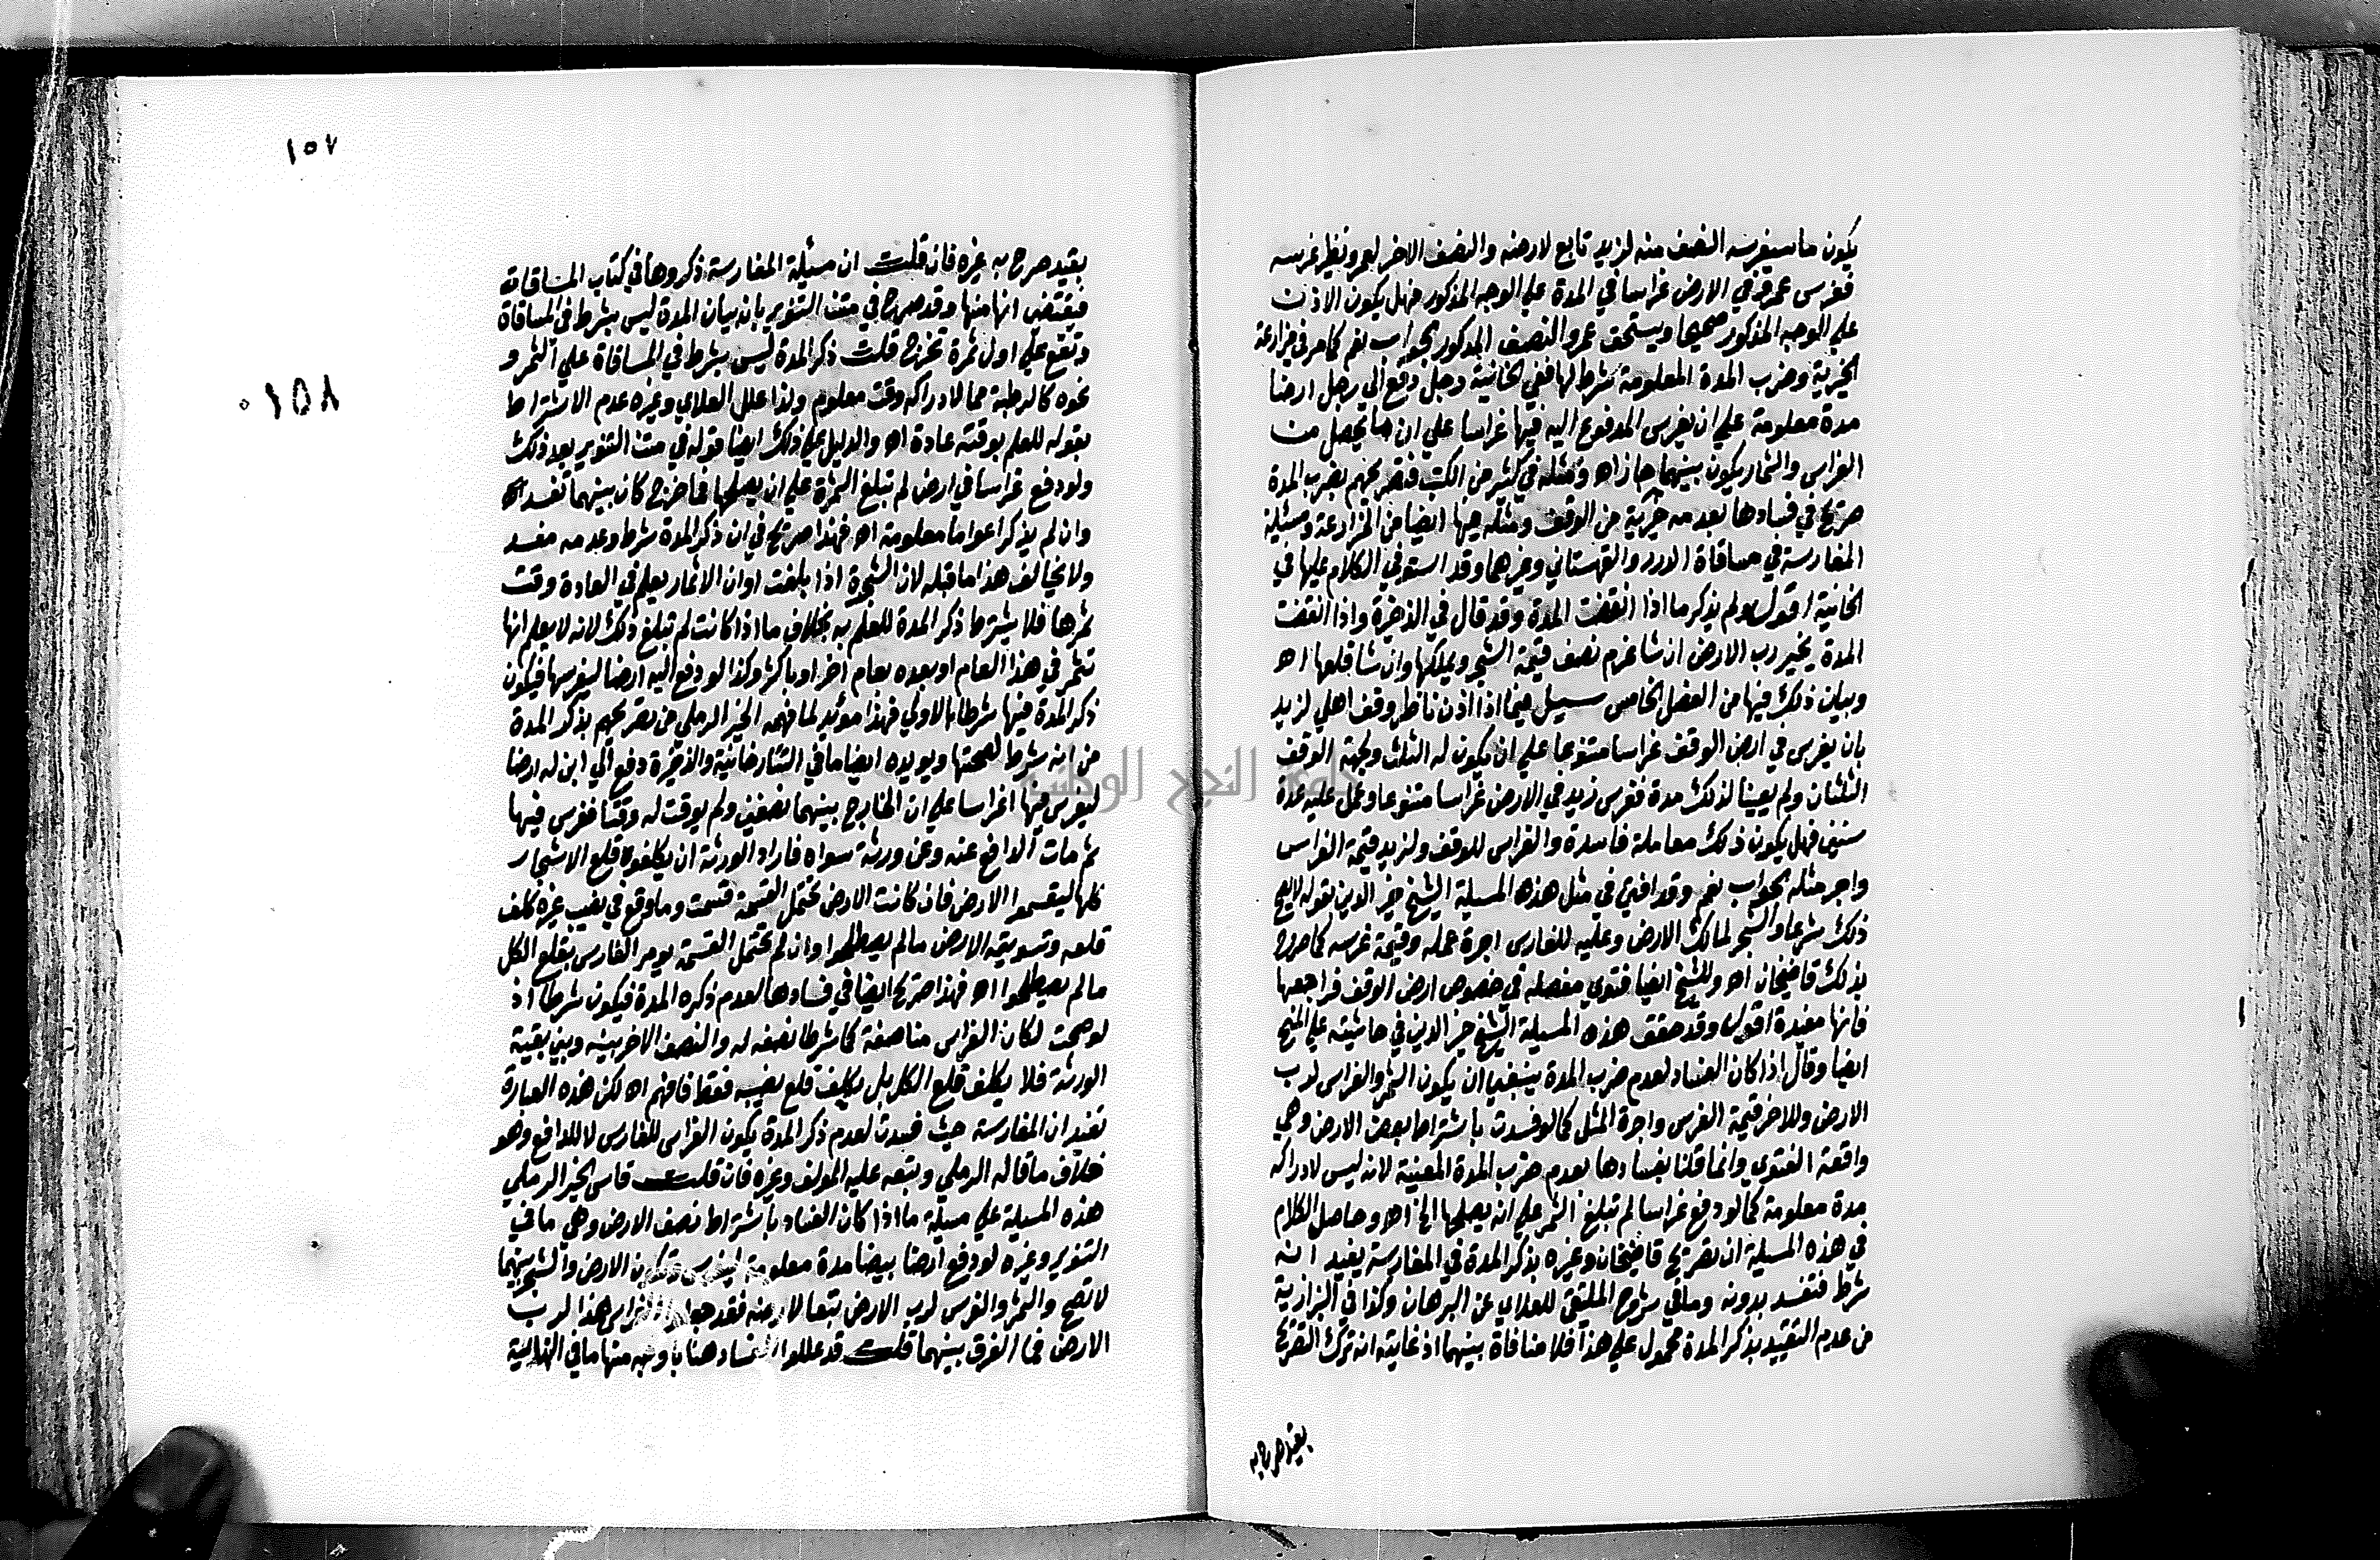 يكون ما سيغرسه النصف منه لزيد تابع لارضه والنصف الاخر لعمرو نظير غرسه
فغرس عمرو في الارض غراسا في المدة علي الوجه المذكور فهل يكون الاذن
علي الوجه المذكور صحيحا ويستحق عمرو النصف المذكور الجواب نعم كما مر في مزارعة
الخيرية وضرب المدة المعلومة شرط لها ففي الخانية رجل دفع الي رجل ارضا
مدة معلومة علي ان يغرس المدفوع اليه فيها غراسا علي ان ما يحصل من
الغراس والثمار يكون بينهما جاز اه ومثله في كثير من الكتب فتصريحهم بضرب المدة
صريح في فسادها بعدمه خيرية من الوقف ومثله فيها ايضا من المزارعة ومسئلة
المغارسة في مساقاة الدرر والقهستاني وغيرهما وقد استوفي الكلام عليها في
الخانية اقول ولم يذكر ما اذا انقضت المدة وقد قال في الذخيرة واذا انقضت
المدة يخير رب الارض ان شا غرم نصف قيمة الشجر ويملكها وان شا قلعها اه
وبيان ذلك فيها من الفصل الخامس سيل فيما اذا اذن ناظر وقف اهلي لزيد
بان يغرس في ارض الوقف غراسا متنوعا علي ان يكون له الثلث ولجهة الوقف
الثلثان ولم يعينا لذلك مدة فغرس زيد في الارض غراسا متنوعا وعمل عليه عدة
سنين فهل يكون ذلك معاملة فاسدة والغراس للوقف ولزيد قيمة الغراس
واجر مثله الجواب نعم وقد افتي في مثل هذه المسيلة الشيخ خير الدين بقوله لا يصح
ذلك شرعا والشجر لمالك الارض وعليه للغارس اجرة عمله وقيمة غرسه كما صرح
بذلك قاضيخان اه وللشيخ ايضا فتوي مفصله في خصوص ارض الوقف فراجعها
فانها مفيدة اقول وقد حقق هذه المسيلة الشيخ خير الدين في حاشيته علي المنح
ايضا وقال اذا كان الفساد لعدم ضرب المدة ينبغي ان يكون الثمر والغراس لرب
الارض وللاخر قيمة الغرس واجرة المثل كما لو فسدت باشتراط بعض الارض وهي
واقعة الفتوي وانما قلنا بفسادها بعدم ضرب المدة المعينة لانه ليس لادراكه
مدة معلومة كما لو دفع غراسا لم تبلغ الثمر علي ان يصلحها الخ اه وحاصل الكلام
في هذه المسيلة ان تصريح قاضيخان وغيره بذكر المدة في المغارسة يفيد انه
شرط فتفسد بدونه وما في شرح الملتقي للعلاي عن البرهان وكذا في البزازية
من عدم التقييد بذكر المدة محمول علي هذا فلا منافاة بينهما اذ غايته انه ترك التصريح
بقيد صرح به
١٥٧
١٥٨
بقيد صرح به غيره فان قلت ان مسيلة المغارسة ذكروها في كتاب المساقاة
فيقتضي انها منها وقد صرح في متن التنوير بان بيان المدة ليس بشرط في المساقاة
وتقع علي اول ثمرة تخرج قلت ذكر المدة ليس بشرط في المساقاة علي الثمر و
نحوه كالرطبة مما لادراكه وقت معلوم ولذا علل العلاي وغيره عدم الاشتراط
بقوله للعلم بوقته عادة اه والدليل علي ذلك ايضا قوله في متن التنوير بعد ذلك
ولو دفع غراسا في ارض لم تبلغ الثمرة علي ان يصلحها فما خرج كان بينهما تفسد اه
وان لم يذكر اعواما معلومة اه فهذا صريح في ان ذكر المدة شرط وعدمه مفسد
ولا يخالف هذا ما قبله لان الشجرة اذا بلغت اوان الاثمار يعلم في العادة وقت
ثمرها فلا يشترط ذكر المدة للعلم به بخلاف ما اذا كانت لم تبلغ ذلك لانه لا يعلم انها
تثمر في هذا العام او بعده بعام اخر او باكثر وكذا لو دفع اليه ارضا ليغرسها فيكون
ذكر المدة فيها شرطا بالاولي فهذا مؤيد لما فهمه الخير الرملي من تصريحهم بذكر المدة
من انه شرط لصحتها ويويده ايضا ما في التتارخانية والذخيرة دفع الي ابن له ارضا
ليغرس فيها اغراسا علي ان الخارج بينهما نصفين ولم يوقت له وقتا فغرس فيها
ثم مات الدافع عنه وعن ورثة سواه فاراد الورثة ان يكلفوه قلع الاشجار
كلها ليقسموا الارض فان كانت الارض تحتمل القسمة قسمت وما وقع في نصيب غيره كلف
قلعه وتسوية الارض ما لم يصطلحوا وان لم تحتمل القسمة يومر الغارس بقلع الكل
ما لم يصطلحوا اه فهذا صريح ايضا في فسادها لعدم ذكره المدة فيكون شرطا اذ
لو صحت لكان الغراس مناصفة كما شرطا نصفه له والنصف الاخر بينه وبين بقية
الورثة فلا يكلف قلع الكل بل يكلف قلع نصيبه فقط فافهم اه لكن هذه العبارة
تفيد ان المغارسة حيث فسدت لعدم ذكر المدة يكون الغراس للغارس لا للدافع وهو
خلاف ما قاله الرملي وتبعه عليه المولف وغيره فان قلت قاس الخير الرملي
هذه المسيلة علي مسيلة ما اذا كان الفساد باشتراط نصف الارض وهي ما في
التنوير وغيره لو دفع ارضا بيضا مدة معلومة ليغرس وتكون الارض والشجر بينهما
لا تصح والثمر والغرس لرب الارض تبعا لارضه فقد جعلوا الغراس هنا لرب
الارض فما الفرق بينهما قلت قد عللوا الفساد هنا باوجه منها ما في النهاية